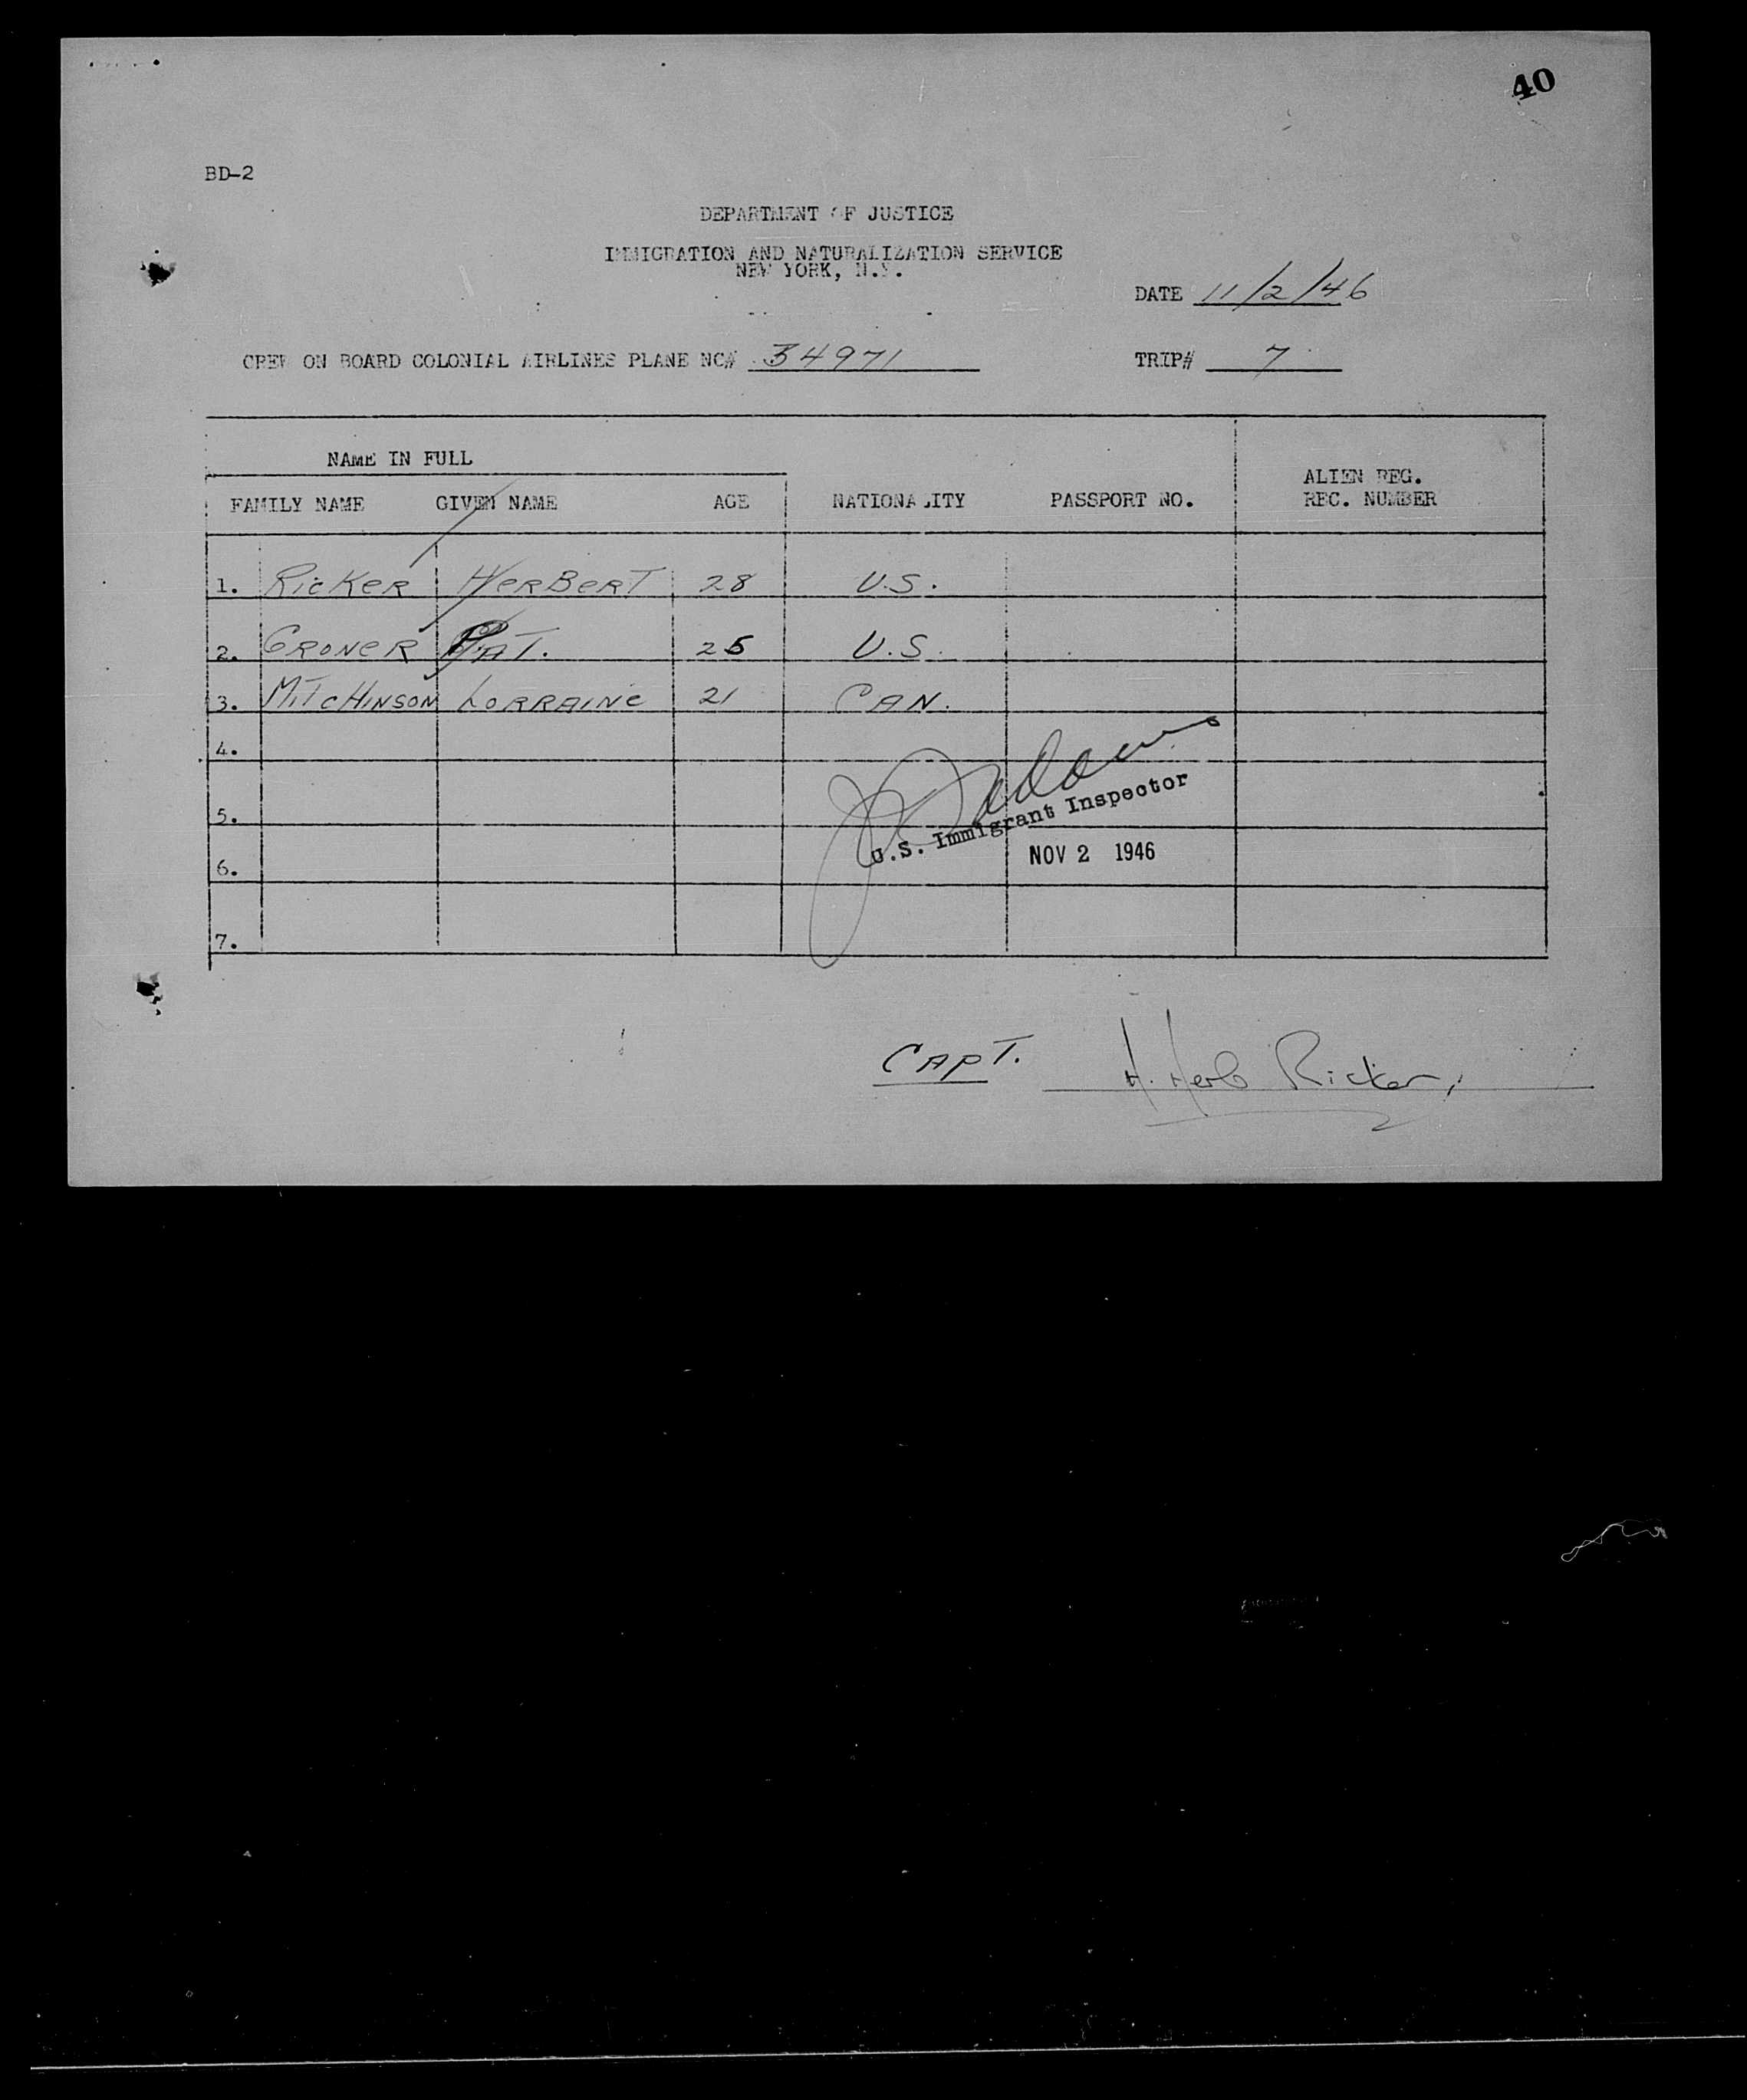 40
BD-2
DEPARTMENT OF JUSTICE
IMMIGRATION AND NATURALIZATION SERVICE
NEW YORK, N.Y.
DATE 11/2/46
CREW ON BOARD COLONIAL AIRLINES PLANE NC# 34971 TRIP# 7
NAME IN FULL
FAMILY NAME GIVEN NAME AGE NATIONALITY PASSPORT NO. ALIEN REG. REC. NUMBER
1. RICKER HERBERT 28 U.S.
2. GRONER PAT. 25 U.S.
3. MITCHINSON LORRAINE 21 CAN.
4.
5.
U.S. Immigrant Inspector
NOV 2 1946
6.
7.
CAPT. H. Herb Ricker